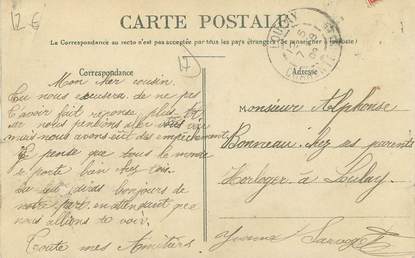 12 €
CARTE POSTALE
La Correspondance au recto n'est pas acceptée par tous les pays étrangers (Se renseigner à la Poste)
Correspondance
Adresse
LOULAY
17
Mon cher cousin.
Tu nous excusera de ne pas
t'avoir fait reponse plus tôt
car nous pensions aller vous voir
mais nous avons eut des impêchements
Je pense que tous le monde
se porte bien chez toi.
tu leur diras bonjours de
notre part en attendant que
nous allions te voir.
Toute mes Amitiers
Monsieur Alphonse
Bonneau chez ses parents
Horloger à Loulay
Yvonne